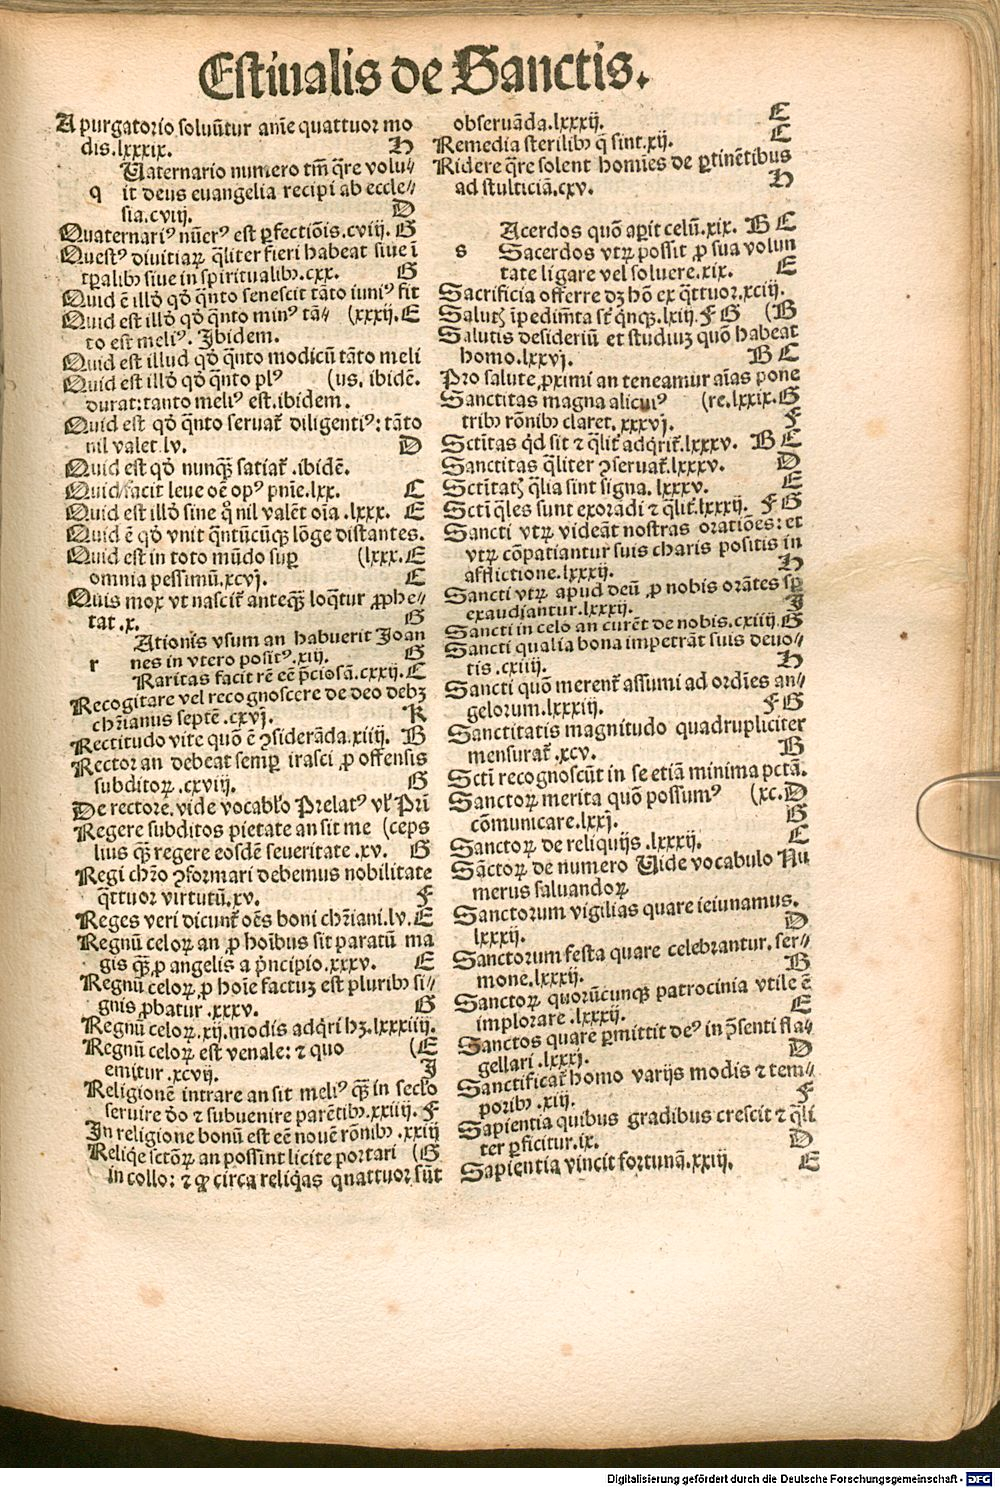 Estiualis de Sanctis.
A purgatorio soluūtur aīe quattuor mo
dis.lxxxix. H
Uaternario numero tm̄ q̄re volu⸗
q it deus euangelia recipi ab eccle⸗
sia.cviij. D
Quaternariꝰ nūerꝰ est ꝑfectiōis.cviij. G
Questꝰ diuitiaꝝ q̄liter fieri habeat siue ī
tꝑalibꝰ siue in spiritualibꝰ.cxx. G
Quid ē illḋ qḋ q̄nto senescit tāto iuniꝰ fit
Quid est illḋ qḋ q̄nto minꝰ tā⸗ (xxxij.E
to est meliꝰ. Ibidem.
Quid est illud qḋ q̄nto modicū tāto meli
Quid est illḋ qḋ q̄nto plꝰ (us. ibidē.
durat:tanto meliꝰ est.ibidem.
Quid est qḋ q̄nto seruat᷑ diligentiꝰ: tāto
nil valet.lv. D
Quid est qḋ nunqꝫ̄ satiat᷑ .ibidē.
Quid facit leue oē opꝰ pnīe.lxx. C
Quid est illḋ sine q̊ nil valēt oīa .lxxx. E
Quid ē qḋ vnit q̄ntūcūqꝫ lōge distantes.
Quid est in toto mūdo suꝑ (lxxx.E
omnia pessimū.xcvj. E
Quis mox vt nascit᷑ anteqꝫ̄ loq̄tur ꝓphe⸗
tat .x. G
Ationis vsum an habuerit Joan
r nes in vtero positꝰ.xij. G
Raritas facit rē eē p̄ciosā.cxxij.C
Recogitare vel recognoscere de deo debꝫ
chr̄ianus septē.cxvj. K
Rectitudo vite quō ē ꝯsiderāda.xiiij. B
Rector an debeat semꝑ irasci ꝓ offensis
subditoꝝ .cxviij. G
De rectore. vide vocabl̄o Prelatꝰ vl̓ Prī
Regere subditos pietate an sit me (ceps
lius qꝫ̄ regere eosdē seueritate .xv. G
Regi chr̄o ꝯformari debemus nobilitate
q̄ttuor virtutū.xv. F
Reges veri dicunt᷑ oēs boni chr̄iani.lv.E
Regnū celoꝝ an ꝓ hoībus sit paratū ma
gis qꝫ̄ ꝓ angelis a p̄ncipio.xxxv. E
Regnū celoꝝ ꝓ hoīe factuꝫ est pluribꝰ si⸗
gnis ꝓbatur .xxxv. G
Regnū celoꝝ.xij.modis adq̄ri hꝫ.lxxxiiij.
Regnū celoꝝ est venale: ⁊ quo (E
emitur .xcvij. J
Religionē intrare an sit meliꝰ qꝫ̄ in secl̄o
seruire ḋo ⁊ subuenire parētibꝰ.xxiiij. F
In religione bonū est eē nouē rōnibꝰ .xxiij
Reliq̄e sctōꝝ an possint licite portari (G
in collo: ⁊ ꝙ circa reliq̄as quattuor sūt
obseruāda.lxxxij. E
Remedia sterilibꝰ q̄ sint.xij. E
Ridere q̄re solent homīes de ꝑtinētibus
ad stulticiā.cxv. H
Acerdos quō aꝑit celū.xix. B C
s Sacerdos vtꝝ possit ꝓ sua volun
tate ligare vel soluere.xix. E
Sacrificia offerre dꝫ hō ex q̄ttuor.xciij.
Salutꝭ īpedimēta st̄ q̄nqꝫ.lxiij.F G (B
Salutis desideriū et studiuꝫ quō habeat
homo.lxxvj. B C
Pro salute ꝓximi an teneamur aīas pone
Sanctitas magna alicuiꝰ (re.lxxix.G
tribꝰ rōnibꝰ claret.xxxvj. F
Sctītas q̄d sit ⁊ q̄lit᷑ adq̄rit᷑.lxxxv. B E
Sanctitas q̄liter ꝯseruat᷑.lxxxv. D
Sctītatꝭ q̄lia sint signa. lxxxv. E
Sctī q̄les sunt exorādi ⁊ q̄lit᷑.lxxxij. F G
Sancti vtꝝ videāt nostras oratiōes: et
vtꝝ cōpatiantur suis charis positis in
afflictione.lxxxij. H
Sancti vtꝝ apud deū ꝓ nobis orātes sꝑ
exaudiantur.lxxxij. J
Sancti in celo an curēt de nobis.cxiiij.G
Sancti qualia bona impetrāt suis deuo⸗
tis .cxiiij. H
Sancti quō merent᷑ assumi ad ordīes an⸗
gelorum.lxxxiij. F G
Sanctitatis magnitudo quadrupliciter
mensurat᷑ .xcv. B
Sctī recognoscūt in se etiā minima pctā.
Sanctoꝝ merita quō possumꝰ (xc.D
cōmunicare.lxxj. G
Sanctoꝝ de reliquijs .lxxxij. E
Sāctoꝝ de numero Uide vocabulo Nu
merus saluandoꝝ
Sanctorum vigilias quare ieiunamus.
lxxxij. D
Sanctorum festa quare celebrantur. ser⸗
mone.lxxxij. B
Sanctoꝝ quorūcunqꝫ patrocinia vtile ē
implorare .lxxxij. E
Sanctos quare ꝑmittit deꝰ in p̄senti fla⸗
gellari .lxxxj. D
Sanctificat᷑ homo varijs modis ⁊ tem⸗
poribꝰ .xij. F
Sapientia quibus gradibus crescit ⁊ q̄li
ter ꝑficitur.ix. D
Sapientia vincit fortunā.xxiij. E
Digitalisierung gefördert durch die Deutsche Forschungsgemeinschaft - DFG